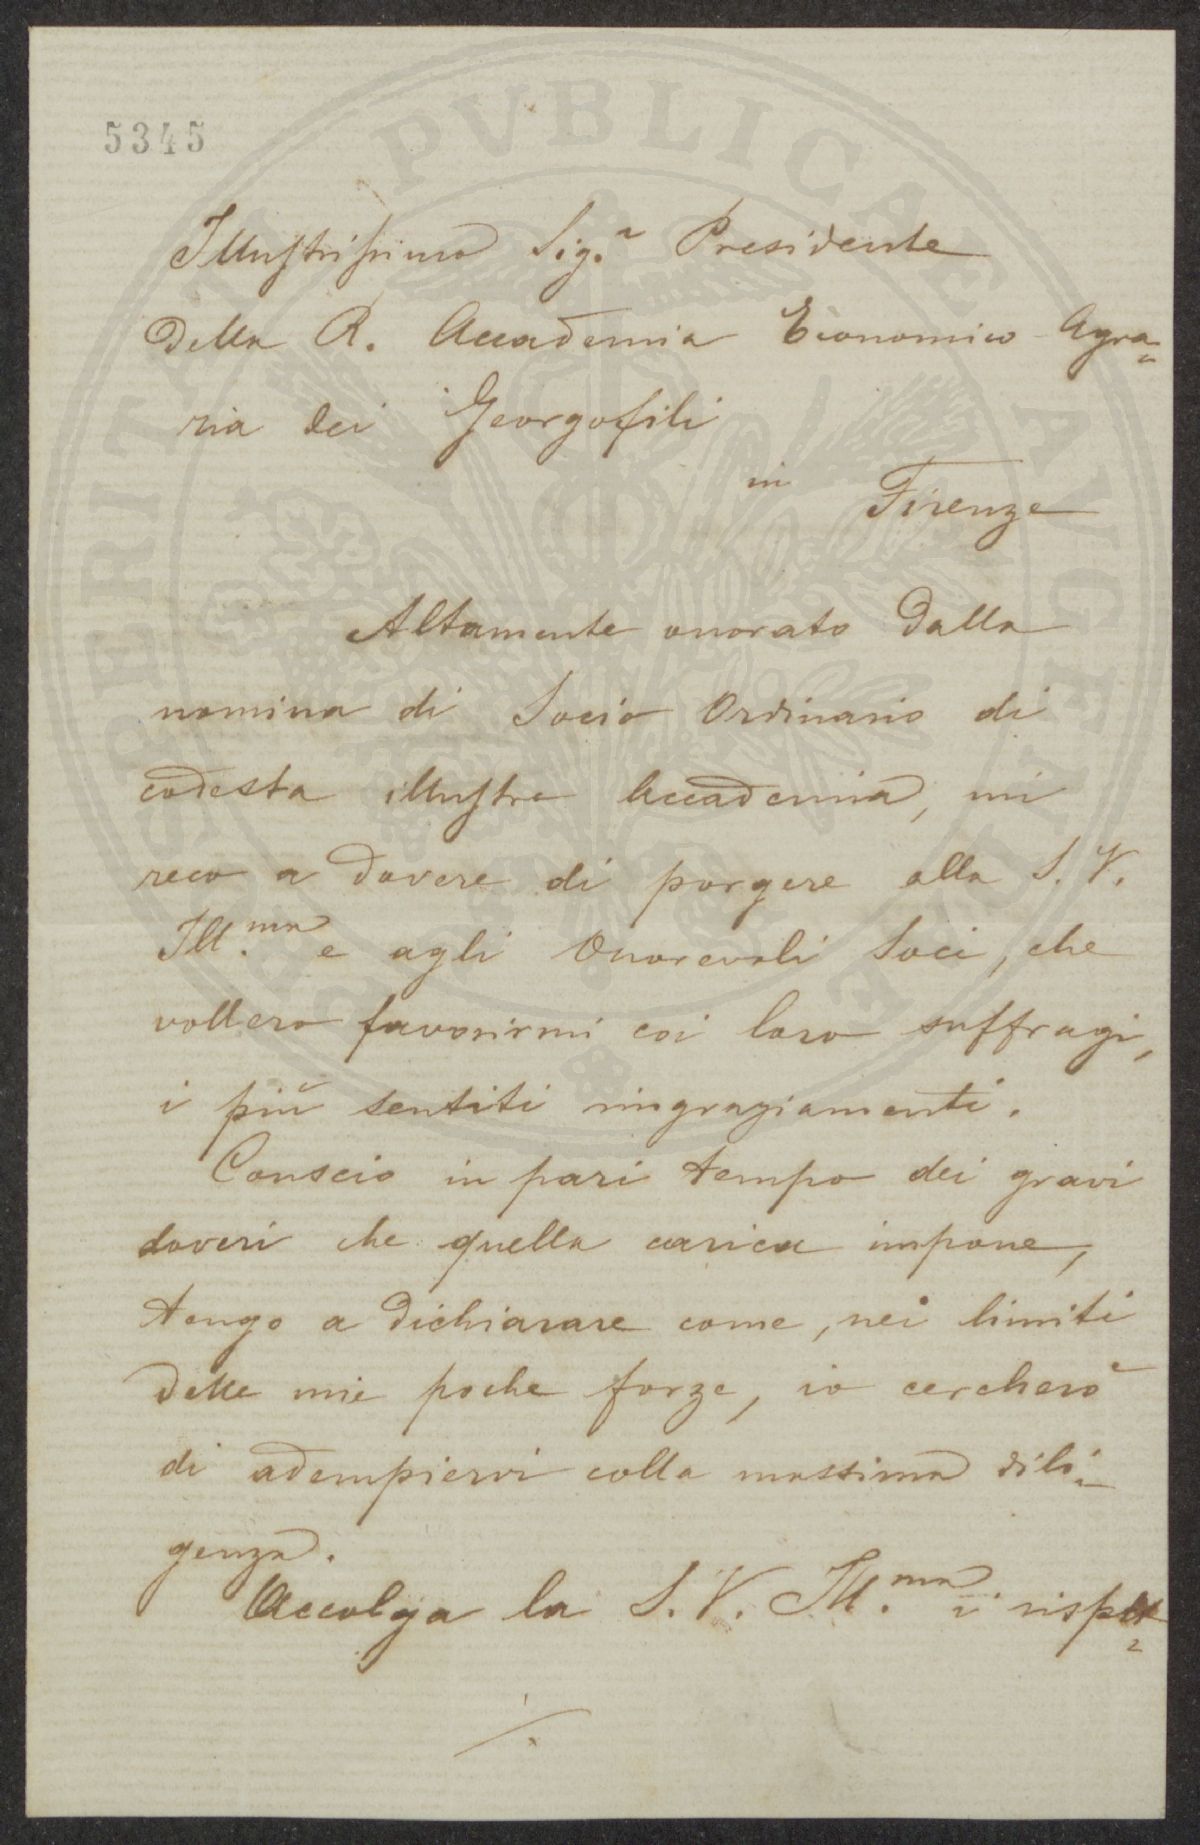 5345
Illustrissimo Sig.r Presidente
della R. Accademia Economico-Agra=
ria dei Georgofili
in Firenze
Altamente onorato dalla
nomina di Socio Ordinario di
codesta illustre Accademia, mi
reco a dovere di porgere alla S. V.
Ill.ma e agli Onorevoli Soci, che
vollero favorirmi coi loro suffragi,
i più sentiti ringraziamenti.
Conscio in pari tempo dei gravi
doveri che quella carica impone,
tengo a dichiarare come, nei limiti
delle mie poche forze, io cercherò
di adempiervi colla massima dili=
genza.
Accolga la S. V. Ill.ma i rispet=
./.
PROSPERITATI PVBLICAE AVGENDAE